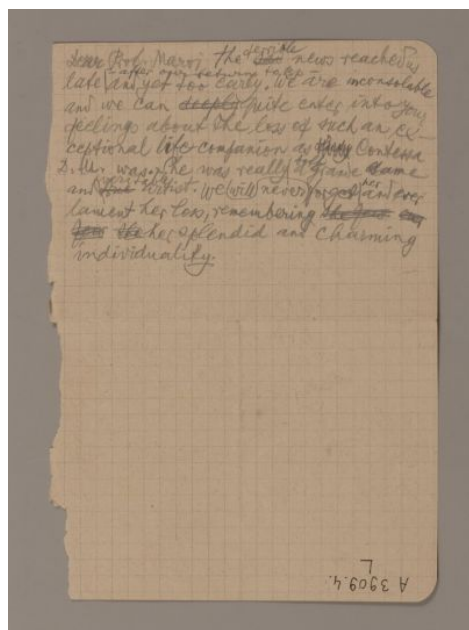 Dear Prof. Maroi the terrible news reached us
late after our return and yet too early. We are inconsolable
and we can deeply quite enter into your
feelings about the loss of such an ex-
ceptional life companion as Contessa
D. M. was. She was really a grande dame
and artist. We (will) never forget her and ever
lament her loss, remembering
the her splendid and charming
individuality.
A 3909.4
L